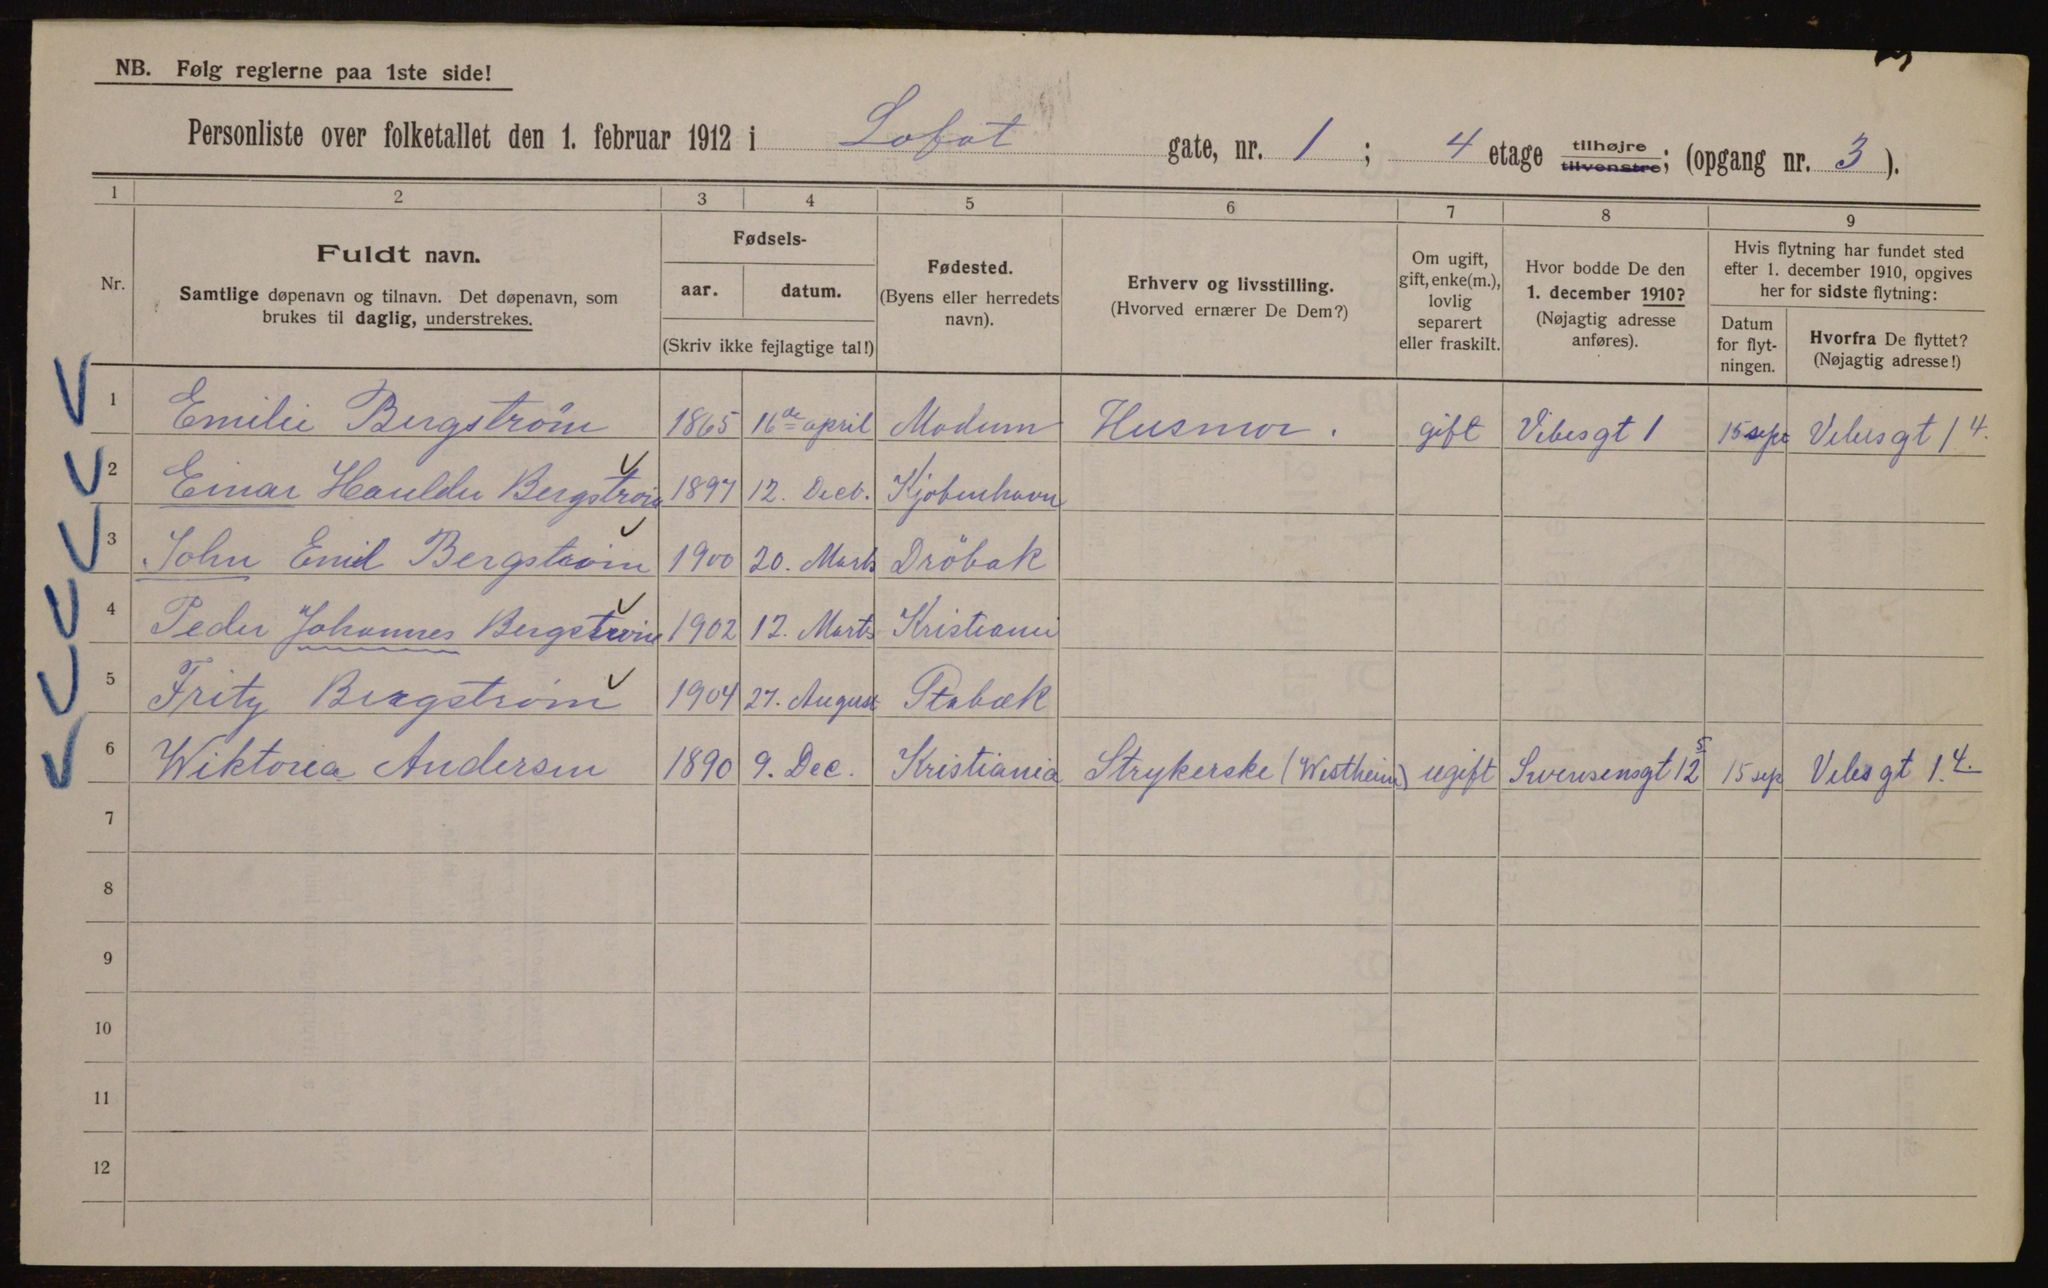 NB. Følg reglerne paa 1ste side!
Personliste over folketallet den 1. februar 1912 i Lofot gate, nr. 1 ; 4 etage tilhøjre tilvenstre; (opgang nr. 3 ).
1 2 3 4 5 6 7 8 9
Nr.
Fuldt navn.
Samtlige døpenavn og tilnavn. Det døpenavn, som
brukes til daglig, understrekes.
Fødsels-
aar. datum.
(Skriv ikke fejlagtige tal!)
Fødested.
(Byens eller herredets
navn).
Erhverv og livsstilling.
(Hvorved ernærer De Dem?)
Om ugift,
gift, enke(m.),
lovlig
separert
eller fraskilt.
Hvor bodde De den
1. december 1910?
(Nøjagtig adresse
anføres).
Hvis flytning har fundet sted
efter 1. december 1910, opgives
her for sidste flytning:
Datum
for flyt-
ningen.
Hvorfra De flyttet?
(Nøjagtig adresse!)
1 Emilie Bergström 1865 16de april Modum Husmor. gift Vibesgt 1 15 sept Vibesgt 1 4.
2 Einar Bergstrøm 1897 12. Decb. Kjøbenhavn
3 John Emil Bergstrøm 1900 20. Marts Dröbak
4 Peder Johannes Bergstrøm 1902 12. Marts Kristiania
5 Fritz Bergstrøm 1904 27. August Stabæk
6 Wiktoria Andersen 1890 9. Dec. Kristiania Strykerske (Westheim) ugift Svensensgt 12 5 15 sep Vibesgt 1. 4.
7
8
9
10
11
12